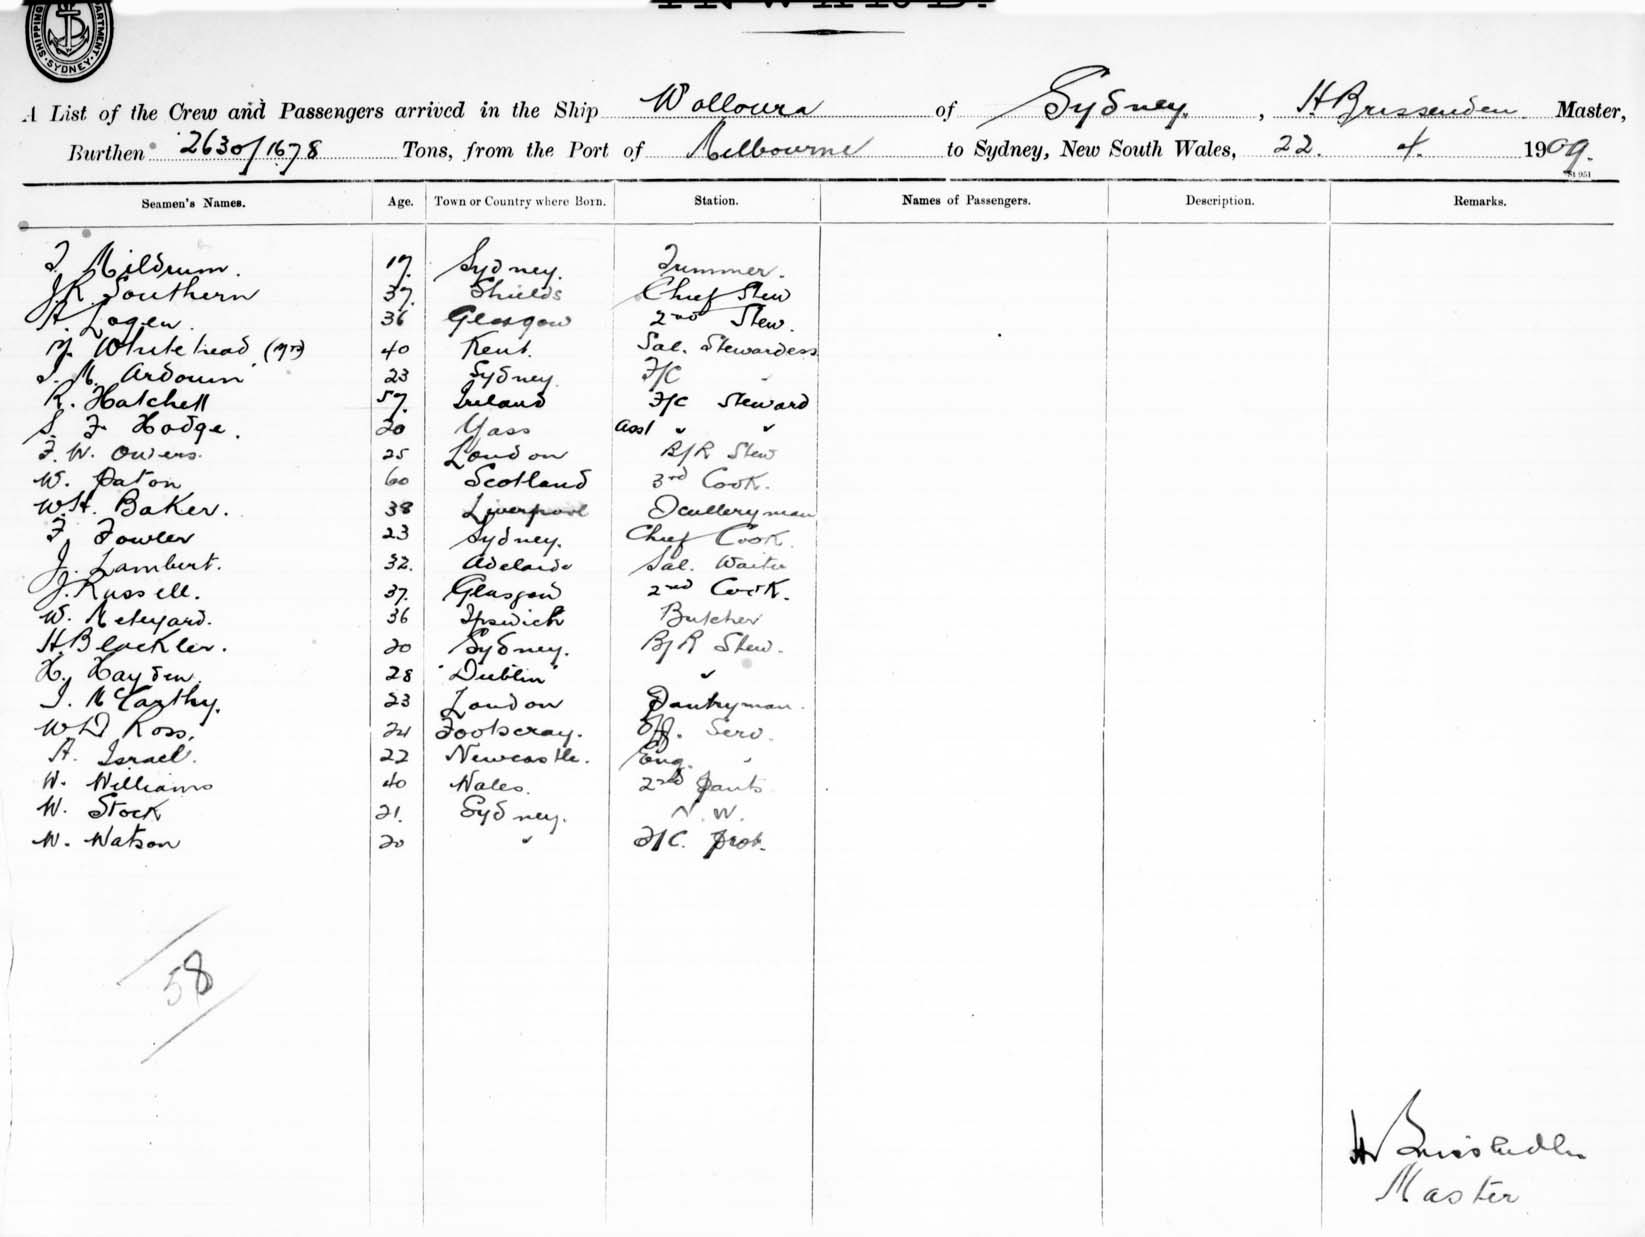 SHIPPING DEPARTMENT SYDNEY
INWARD.
A List of the Crew and Passengers arrived in the Ship Wolloura of Sydney, H Brissenden Master,
Burthen 2630/1678 Tons, from the Port of Melbourne to Sydney, New South Wales, 22. 4. 1909.
Seamen's Names. Age. Town or Country where Born. Station. Names of Passengers. Description. Remarks.
Mildrum. 17. Sydney. Trimmer.
J.R. Southern 37. Shields Chief Stew
A. Logen. 36 Glasgow 2nd Stew.
M. Whitehead (Mrs) 40 Kent. Sal. Stewardess
M. Ardouin 23 Sydney F/C "
R. Hatchell 57. Ireland F/C Steward
S. F. Hodge. 20 Yass Asst " "
F. W. Owers. 25 London B/R Stew
W. Paton 60 Scotland 3rd Cook.
W.H. Baker. 38 Liverpool Sculleryman
F. Fowler 23 Sydney. Chief Cook.
J. Lambert. 32. Adelaide Sal. Waiter
J. Russell. 37. Glasgow 2nd Cook.
W. Meteyard. 36 Ipswich Butcher
H Blackler. 20 Sydney. B/R Stew.
H. Hayden. 28 Dublin "
J. McCarthy. 23 London Pantryman.
W D Ross. 24 Footscray. Off. Serv.
A. Israel. 22 Newcastle. Eng. "
W. Williams 40 Wales. 2nd Pants
W. Stock 21. Sydney. N. W.
W. Watson 20 " F/C. Prov.
58
H Brissenden
Master